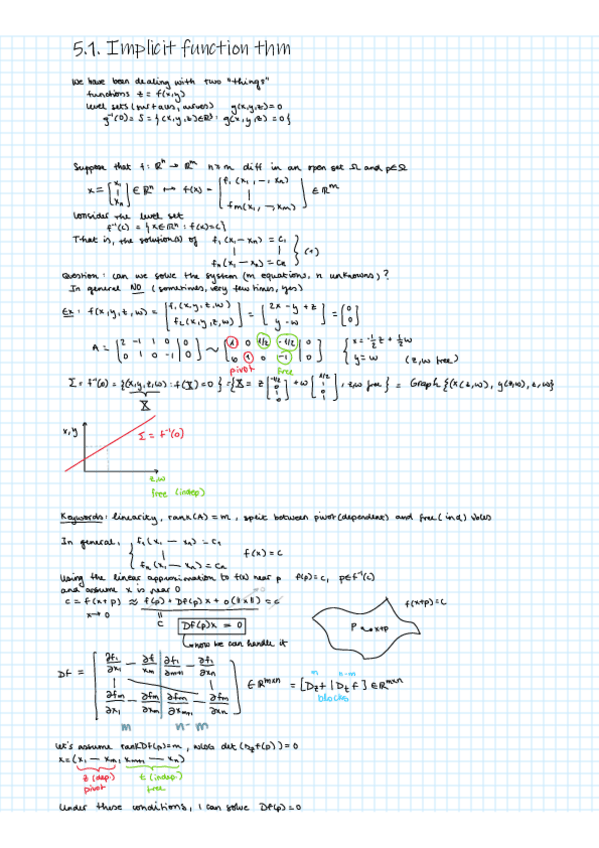 5.1. Implicit function thm
We have been dealing with two "things"
functions z = f(x,y)
level sets (surfaces, curves) g(x,y,z)=0
g⁻¹(0)= S = {(x,y,z)∈R³ : g(x,y,z)=0}
Suppose that f: Rⁿ → Rᵐ n≥m diff in an open set Ω and p∈Ω
x = [x₁ | xₙ] ∈ Rⁿ ↦ f(x) = [f₁(x₁, -, xₙ) | fm(x₁, -, xm)] ∈ Rᵐ
Consider the level set
f⁻¹(c) = {x∈Rⁿ : f(x)=c}
That is, the solution(s) of f₁(x₁ — xₙ) = c₁ | fₙ(x₁ — xₙ) = cₙ } (*)
Question: can we solve the system (m equations, n unknowns)?
In general NO (sometimes, very few times, yes)
Ex: f(x,y,z,w) = [f₁(x,y,z,w) f₂(x,y,z,w)] = [2x-y+z y-w] = [0 0]
A = [2 -1 1 0 | 0 0 1 0 -1 | 0] ~ [1 0 1/2 -1/2 | 0 0 1 0 -1 | 0] { x = -1/2 z + 1/2 w
y = w (z,w free)
pivot free
Σ = f⁻¹(0) = {(x,y,z,w) : f(X) = 0} = {X = z [-1/2 0 1 0] + w [1/2 1 0 1], z,w free} = Graph {(x(z,w), y(z,w), z,w}
X
x,y
Σ = f⁻¹(0)
z,w
free (indep)
Keywords: linearity, rank(A) = m, split between pivot (dependent) and free (ind) vbles
In general, { f₁(x₁ — xₙ) = c₁ | fₙ(x₁ — xₙ) = cₙ f(x) = c
Using the linear approximation to f(x) near p f(p)=c, p∈f⁻¹(c)
and assume x is near 0
c = f(x+p) ≈ f(p) + Df(p)x + o(‖x‖) = c
x→0
c
Df(p)x = 0
now we can handle it
f(x+p)=c
P x+p
Df = [∂f₁/∂x₁ — ∂f/xm ∂f₁/∂m+1 — ∂f₁/∂xn | ∂fm/∂x₁ — ∂fm/∂xm ∂fm/∂xm+1 — ∂fm/∂xn] ∈ Rᵐˣⁿ = [Dzf | Dtf] ∈ Rᵐˣⁿ
m n-m
blocks
m n-m
Let's assume rank Df(p)=m, wlog det(Dzf(p)) = 0
x = (x₁ — xm, xm+1 — xn)
z (dep.) t (indep.)
pivot free
Under these conditions, I can solve Df(p)=0